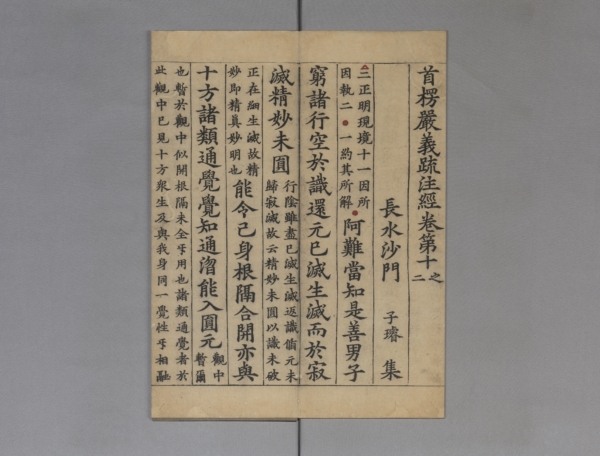 首楞嚴義疏注經卷第十之二
長水沙門 子璿 集
三正明現境十一因所
因執二 一約其所解
阿難當知是善男子
窮諸行空於識還元已滅生滅而於寂
滅精妙未圓
行陰雖盡已滅生滅返識偹元未
歸寂滅故云精妙未圓以識未破
正在細生滅故精
妙即精真妙明也
能令己身根隔合開亦與
十方諸類通覺覺知通㳷能入圓元
觀中
暫爾
也暫於觀中似開根隔未全互用也諸類通覺者於
此觀中已見十方衆生及與我身同一覺性互相融